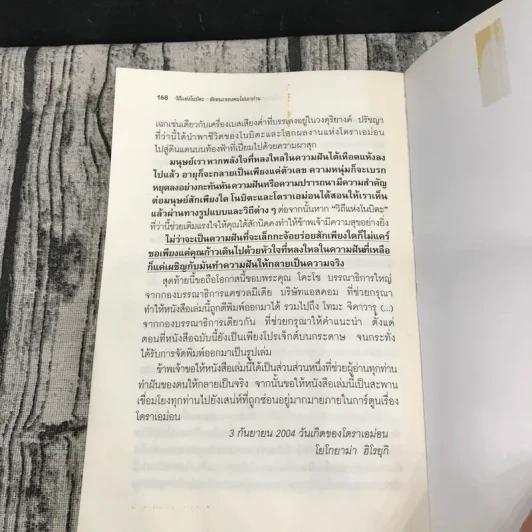 168 วิถีแห่งโนบิตะ : ชัยชนะของคนไม่เอาถ่าน
เฉกเช่นเดียวกับเครื่องเบสเสียงต่ำที่บรรเลงอยู่ในวงดุริยางค์ ปรัชญา
ที่ว่านี้ได้นำพาชีวิตของโนบิตะและโลกผลงานแห่งโดราเอม่อน
ไปสู่ดินแดนบนท้องฟ้าที่เปี่ยมไปด้วยความผาสุก
มนุษย์เราหากพลังใจที่หลงใหลในความฝันได้เหือดแห้งลง
ไปแล้ว อายุก็จะกลายเป็นเพียงแค่ตัวเลข ความหนุ่มก็จะเบรก
หยุดลงอย่างกะทันหันความฝันหรือความปรารถนามีความสำคัญ
ต่อมนุษย์สักเพียงใด โนบิตะและโดราเอม่อนได้สอนให้เราเห็น
แล้วผ่านทางรูปแบบและวิถีต่าง ๆ ต่อจากนั้นหาก "วิถีแห่งโนบิตะ"
ที่ว่านี้ช่วยเติมแรงใจให้คุณได้สักนิดคงทำให้ข้าพเจ้ามีความสุขอย่างยิ่ง
ไม่ว่าจะเป็นความฝันที่จะเล็กกะจ้อยร่อยสักเพียงใดก็ไม่แคร์
ขอเพียงแค่คุณก้าวเดินไปด้วยหัวใจที่หลงใหลในความฝันที่เหลือ
ก็แค่เผชิญกับมันทำความฝันให้กลายเป็นความจริง
สุดท้ายนี้ขอถือโอกาสนี้ขอบพระคุณ โคะโซ บรรณาธิการใหญ่
จากกองบรรณาธิการแคชวลมีเดีย บริษัทแอสคอม ที่ช่วยกรุณา
ทำให้หนังสือเล่มนี้ถูกตีพิมพ์ออกมาได้ รวมไปถึง โทมะ จิคาวารุ (...)
จากกองบรรณาธิการเดียวกัน ที่ช่วยกรุณาให้คำแนะนำ ตั้งแต่
ตอนที่หนังสือฉบับนี้ยังเป็นเพียงโปรเจ็กต์บนกระดาษ จนกระทั่ง
ได้รับการจัดพิมพ์ออกมาเป็นรูปเล่ม
ข้าพเจ้าขอให้หนังสือเล่มนี้ได้เป็นส่วนส่วนหนึ่งที่ช่วยผู้อ่านทุกท่าน
ทำฝันของตนให้กลายเป็นจริง จากนั้นขอให้หนังสือเล่มนี้เป็นสะพาน
เชื่อมโยงทุกท่านไปยังเสน่ห์ที่ถูกซ่อนอยู่มากมายภายในการ์ตูนเรื่อง
โดราเอม่อน
3 กันยายน 2004 วันเกิดของโดราเอม่อน
โยโกยาม่า ฮิโรยุกิ